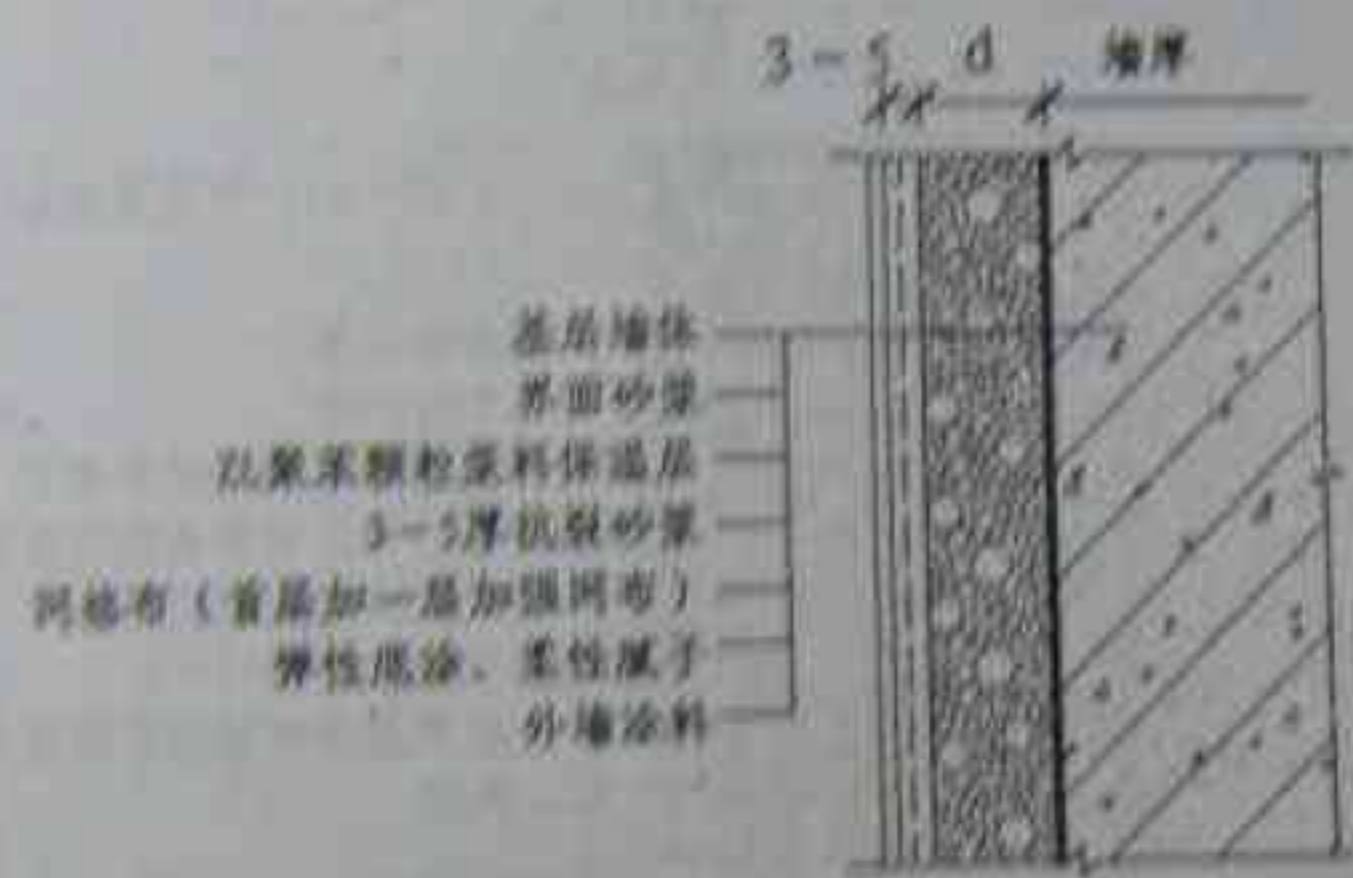 3-5 d 墙厚
基层墙体
界面砂浆
以聚苯颗粒浆料保温层
3-5厚抗裂砂浆
网格布(首层加一层加强网布)
弹性底涂、柔性腻子
外墙涂料